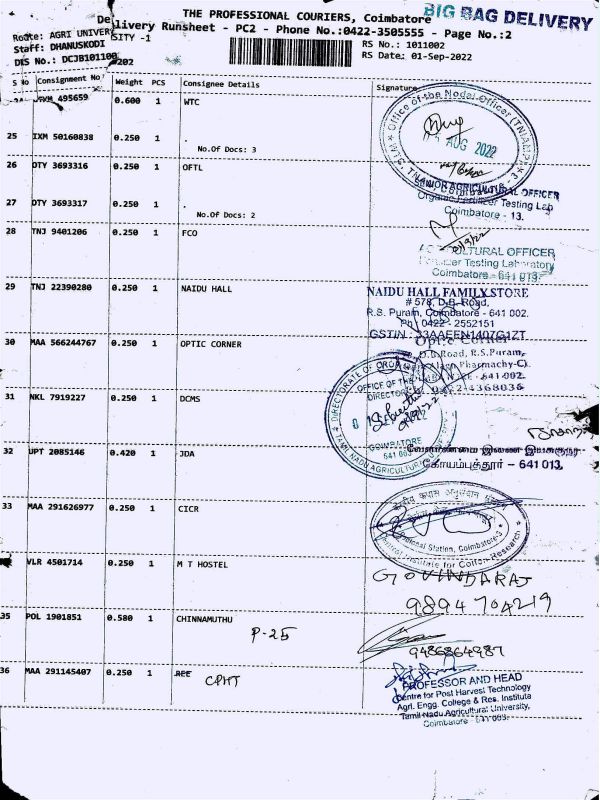 THE PROFESSIONAL COURIERS, Coimbatore
BIG BAG DELIVERY
Delivery Runsheet - PC2 - Phone No.:0422-3505555 - Page No.:2
Route: AGRI UNIVERSITY -1
RS No.: 1011002
Staff: DHANUSKODI
RS Date: 01-Sep-2022
DRS No.: DCJB101100 0202
S No Consignment No Weight PCS Consignee Details Signature
495659 0.600 1 WTC
Office of the Nodal Officer (TNIAMP)
AUG 2022
25 IXM 50160838 0.250 1 .
No.Of Docs: 3
26 DTY 3693316 0.250 1 OFTL
SENIOR AGRICULTURAL OFFICER
Testing Lab
Coimbatore - 13.
27 DTY 3693317 0.250 1 .
No.Of Docs: 2
28 TNJ 9401206 0.250 1 FCO
AGRICULTURAL OFFICER
Fertilizer Testing Laboratory
Coimbatore - 641 013.
29 TNJ 22390280 0.250 1 NAIDU HALL
NAIDU HALL FAMILY STORE
# 578, D.B. Road,
R.S. Puram, Coimbatore - 641 002.
Ph : 0422 - 2552151
GSTIN : 33AAEEN1407G1ZT
30 MAA 566244767 0.250 1 OPTIC CORNER
Optic Corner
D.B.Road, R.S.Puram,
641 002.
31 NKL 7919227 0.250 1 DCMS
OFFICE OF THE
COIMBATORE
641 003
32 UPT 2085146 0.420 1 JDA
வேளாண்மை இணை இயக்குநர்
கோயம்புத்தூர் – 641 013.
33 MAA 291626977 0.250 1 CICR
Regional Station, Coimbatore-3
Central Institute for Cotton Research
VLR 4501714 0.250 1 M T HOSTEL
GOVINDARAJ
9894704219
35 POL 1901851 0.580 1 CHINNAMUTHU
P-25
9486864987
36 MAA 291145407 0.250 1 AEE
CPHT
PROFESSOR AND HEAD
Centre for Post Harvest Technology
Agrl. Engg. College & Res. Institute
Tamil Nadu Agricultural University,
Coimbatore - 641 003.